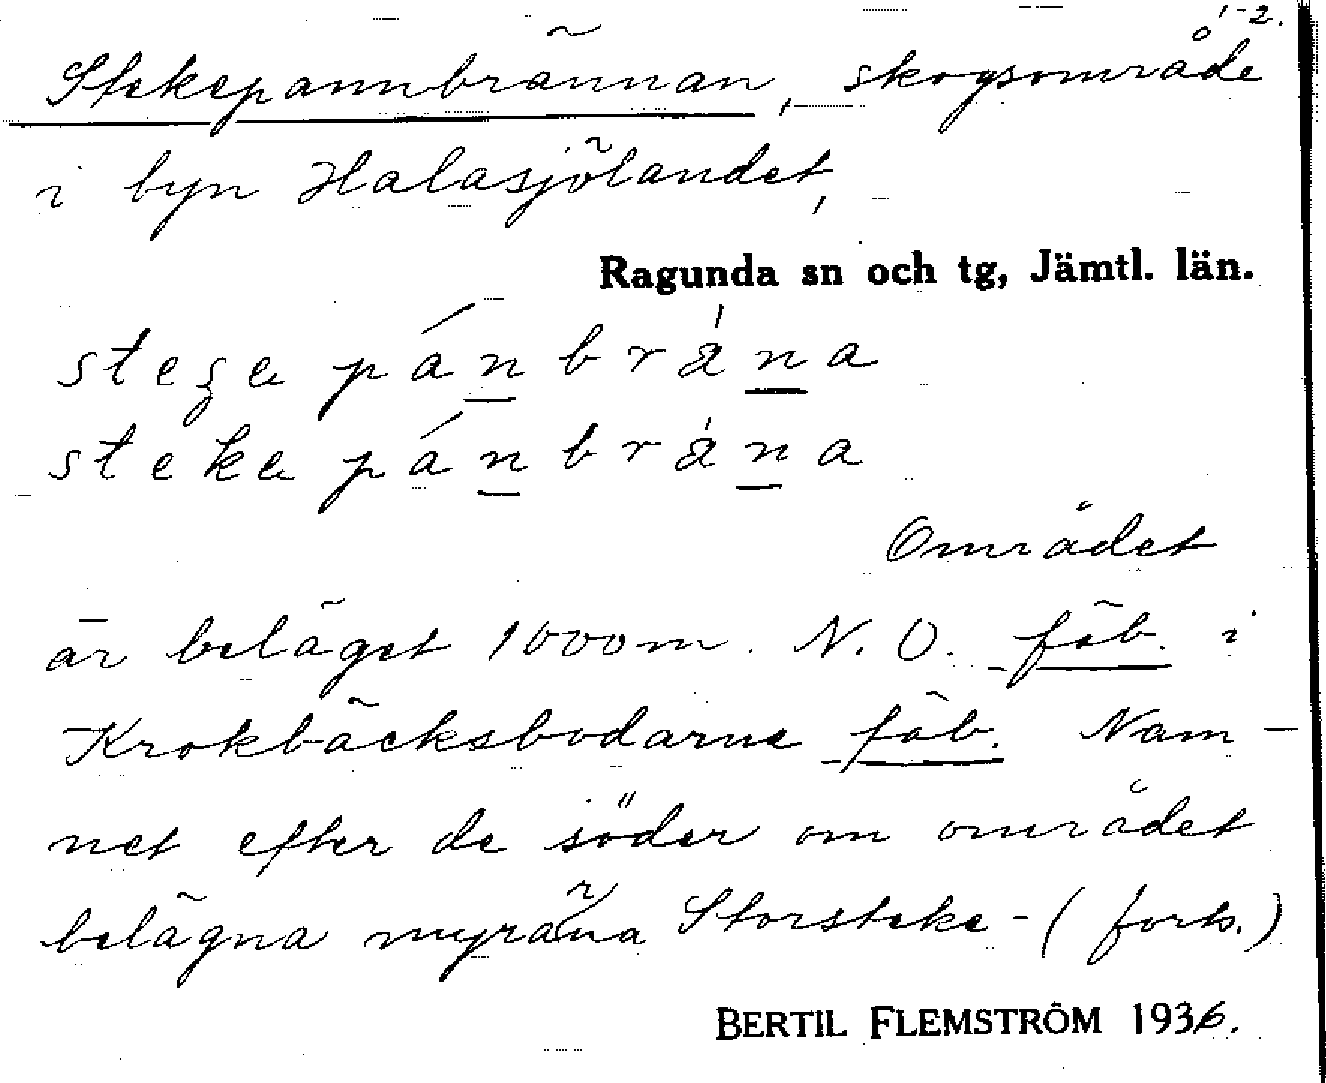 1-2.
Stekepannbrännan, skogsområde
i byn Halasjölandet,
Ragunda sn och tg, Jämtl. län.
steke pánbrána
Området
är beläget 1000m. N.O. fäb. i
Krokbäcksbodarne fäb. Nam-
net efter de söder om området
belägna myrarna Storsteke-(forts.)
BERTIL FLEMSTRÖM 1936.